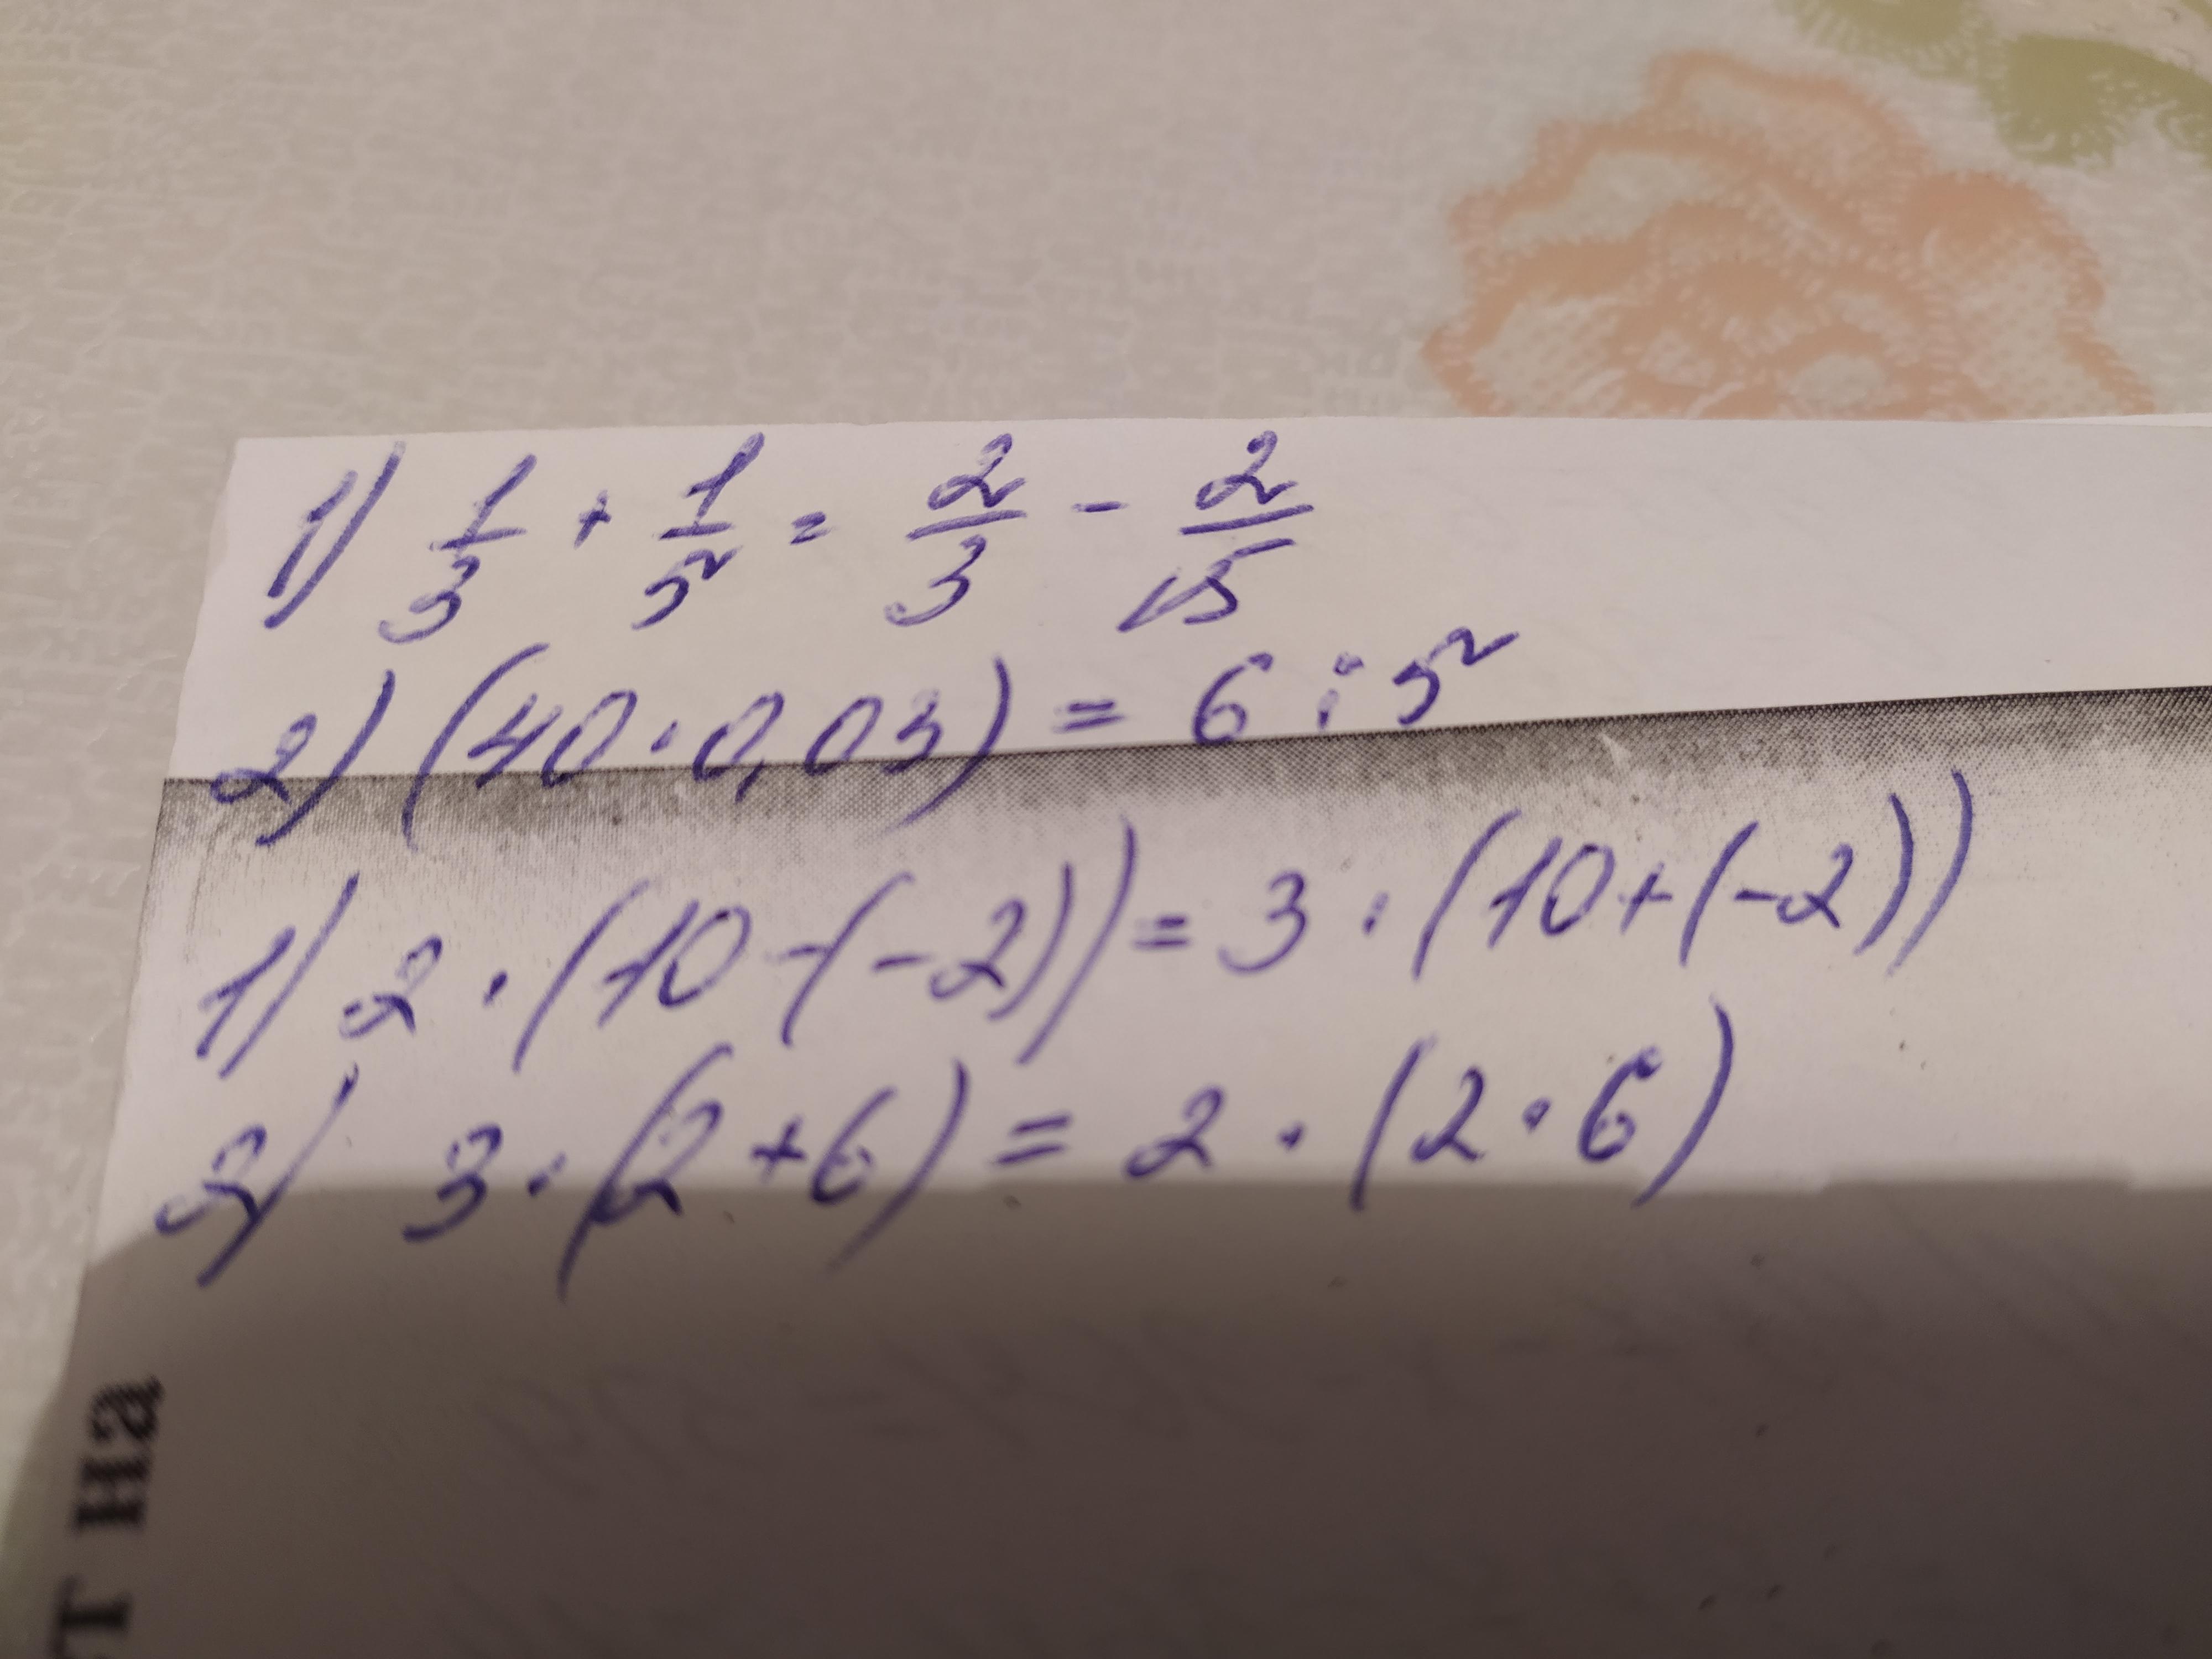 1) 1/3 + 1/5 = 2/3 - 2/15
2) (40 · 0,03) = 6 : 5
1) 2 · (10 - (-2)) = 3 · (10 + (-2))
2) 3 · (2 + 6) = 2 · (2 · 6)
т на